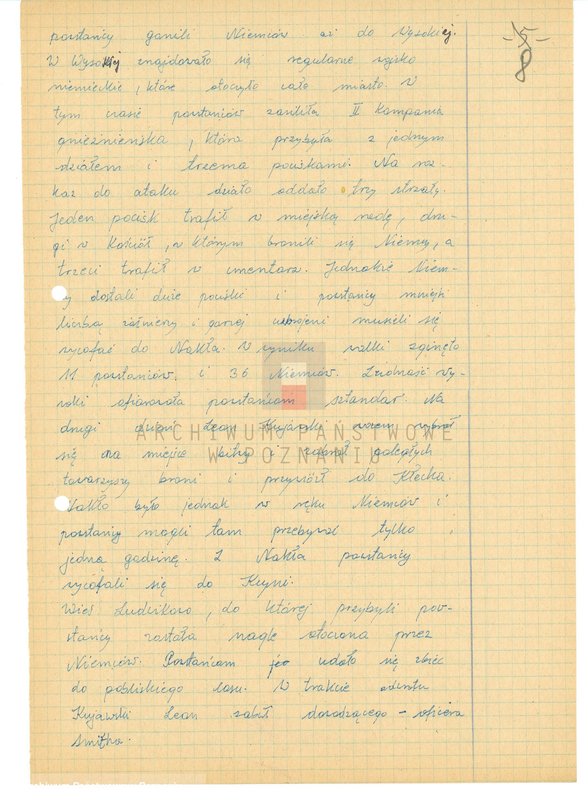 8
powstańcy gonili Niemców aż do Wysokiej.
W Wysokiej znajdowało się regularne wojsko
niemieckie, które otoczyło całe miasto. W
tym czasie powstańców zasiliła II Kompania
gnieźnieńska, która przybyła z jednym
działem i trzema pociskami. Na roz-
kaz do ataku działo oddało trzy strzały.
Jeden pocisk trafił w miejską radę, dru-
gi w Kościół, w którym bronili się Niemcy, a
trzeci trafił w cmentarz. Jednakże Niem-
cy dostali duże posiłki i powstańcy mniejsi
liczbą żołnierzy i gorzej uzbrojeni musieli się
wycofać do Nakła. W wyniku walki zginęło
11 powstańców i 36 Niemców. Ludność Wy-
soki ofiarowała powstańcom sztandar. Na
drugi dzień Leon Kujawski wybrał
się na miejsce bitwy i zabrał poległych
towarzyszy broni i przywiózł do Kłecka.
Nakło było jednak w ręku Niemców i
powstańcy mogli tam przebywać tylko
jedną godzinę. Z Nakła powstańcy
wycofali się do Kcyni.
Wieś Ludwikowo, do której przybyli pow-
stańcy została nagle otoczona przez
Niemców. Powstańcom udało się zbiec
do pobliskiego lasu. W trakcie odwrotu
Kujawski Leon zabił dowodzącego - oficera
Smitha.
ARCHIWUM PAŃSTWOWE
W POZNANIU